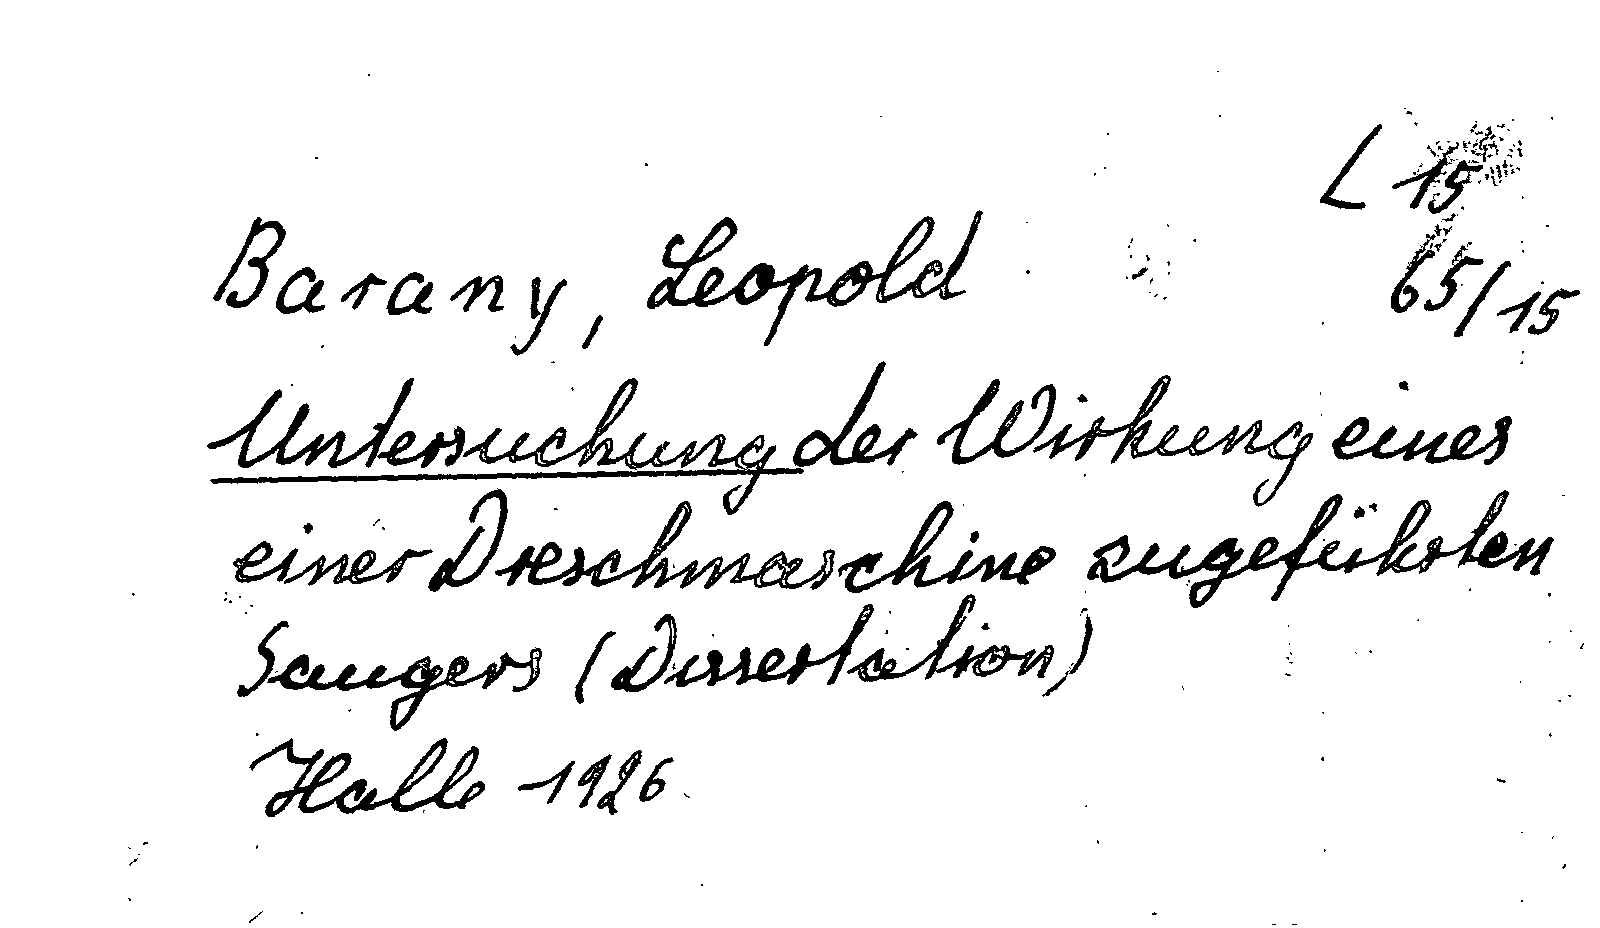 L 15
65/15
Barany, Leopold
Untersuchung der Wirkung eines
einer Dreschmaschine zugeführten
Saugers (Dissertation)
Halle 1926